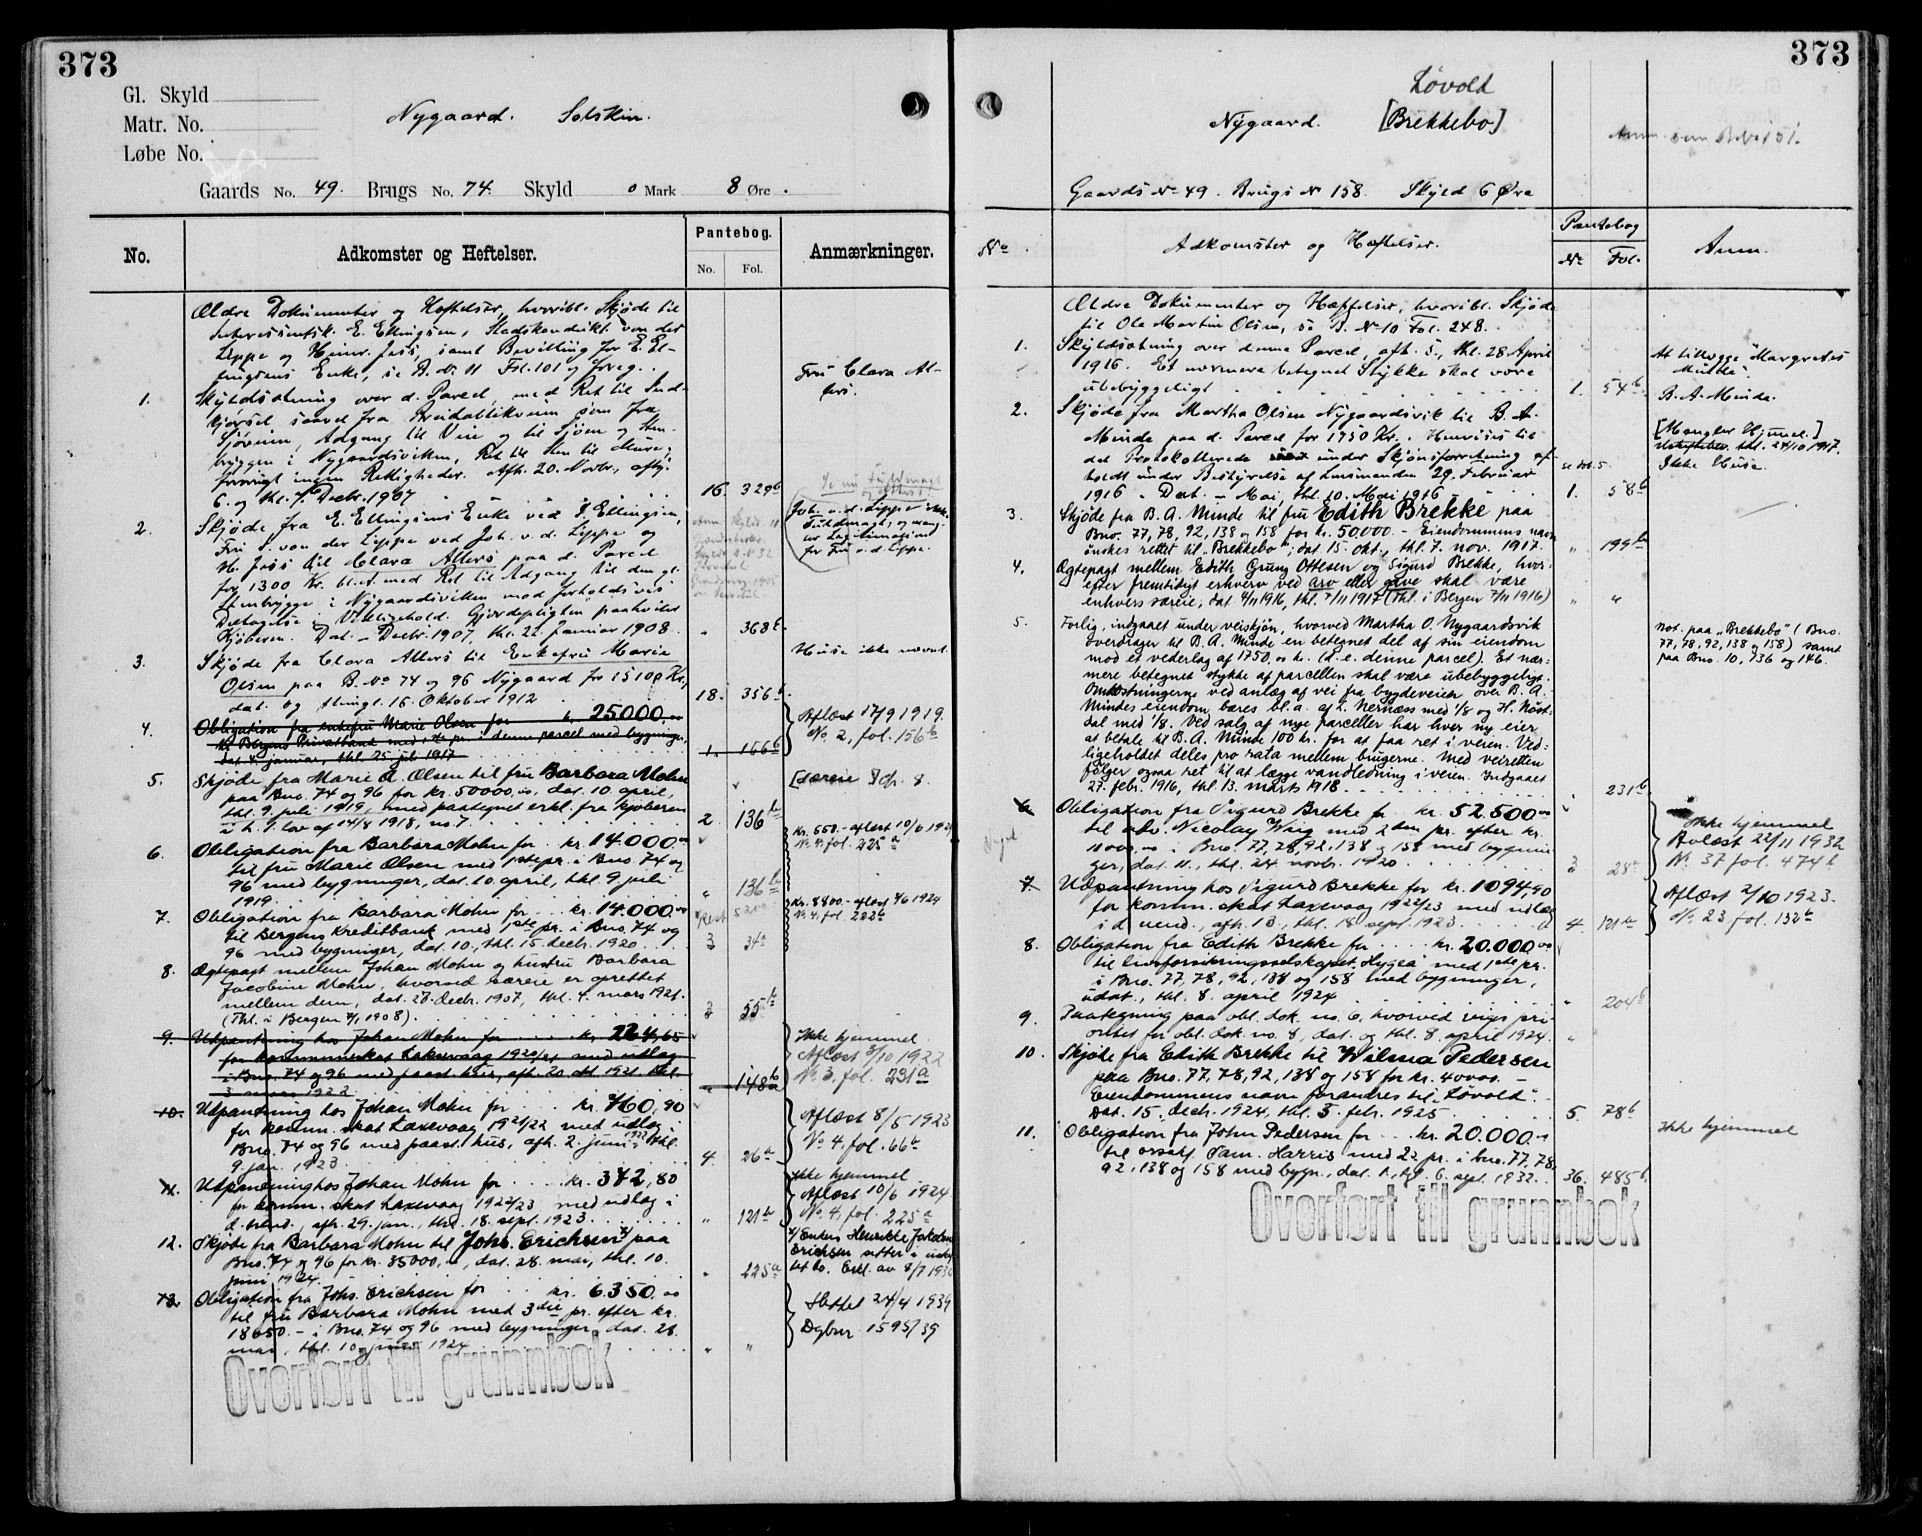 373
Gl. Skyld
Matr. No.
Løbe No.
Nygaard. Solskin.
Gaards No. 49. Brugs No. 74. Skyld 0 Mark 8 Øre.
No.
Adkomster og Heftelser.
Pantebog.
No. Fol.
Anmærkninger.
Ældre Dokumenter og Heftelser, hvoribl. Skjøde til
E. Ellingsen, Stadskonduktr. von der
Lippe og Heinr. Jess, samt Bevilling for E. El-
lingsens Enke, se B. No. 11 Fol. 101 og foreg.
Fru Clara Al-
lers.
1. Skyldsætning over d. Parcel, med Ret til Ind-
kjørsel saavel fra som fra
Sjøveien, Adgang til Veie og til Sjøen og Sten-
bryggen i Nygaardsviken, Ret til Sten til Mure,
forøvrigt ingen Rettigheder. Afh. 20. Novbr., afhj.
6. og thl. 7. Decbr. 1907 16. 329b
2. Skjøde fra E. Ellingsens Enke ved J. Ellingsen,
Fru S. von der Lippe ved Joh. v. d. Lippe og
H. Jess til Clara Allers paa d. Parcel
for 1300 Kr. bl. A. med Ret til Adgang til den gl.
Stenbrygge i Nygaardsviken mod forholdsvis
Deltagelse i Vedligehold. Gjerdepligten paahviler
Kjøberen. Dat. – Decbr. 1907, thl. 22. Januar 1908. " 368b
Joh. v. d. Lippe
Fuldmagt, og mang-
ler Legitimation
for Fru v. d. Lippe.
3. Skjøde fra Clara Allers til Enkefru Marie
Olsen paa B. No 74 og 96 Nygaard for 15100 Kr.,
dat. og thingl. 16. Oktober 1912 18. 356b
Huse ikke nævnt.
4. Obligation fra enkefru Marie Olsen for kr. 25000,00
til Bergens Privatbank med 1ste pr. i denne parcel med bygninger,
dat. 4. januar, thl. 25. juli 1917 1. 166b
Aflæst 17/9 1919.
No. 2, fol. 156b
5. Skjøde fra Marie A. Olsen til fru Barbara Mohn
paa Bno. 74 og 96 for kr. 50000,00, dat. 10. april,
thl. 9. juli 1919, med paategnet erkl. fra kjøberen
i h. t. lov af 14/8 1918, no. 7. 2. 136b
[Særeie Dok. 8.
6. Obligation fra Barbara Mohn for kr. 14.000,00
til fru Marie Olsen med 1ste pr. i Bno. 74 og
96 med bygninger, dat. 10. april, thl. 9. juli
1919. " 136b
Kr. 550.- aflæst 10/6 1924
No. 4, fol. 225a
7. Obligation fra Barbara Mohn for kr. 14.000,00
til Bergens Kreditbank med 1ste pr. i Bno. 74 og
96 med bygninger, dat. 10., thl. 15. decbr. 1920 3 34a
Rest 5200.-
Kr. 8800.- aflæst 4/6 1924
No. 4, fol. 222b
8. Ægtepagt mellem Johan Mohn og hustru Barbara
Jacobine Mohn, hvorved særeie er oprettet
mellem dem, dat. 28. decbr. 1907, thl. 4. mars 1921.
(Thl. i Bergen 7/1 1908). 3 55b
9. Udpantning hos Johan Mohn for kr. 224,65
for kommuneskat Laxevaag 1920/21 med udlæg
i Bno. 74 og 96 med paast. hus, afh. 20. okt. 1921, thl.
3. mars 1922 " 148b
Ikke hjemmel
Aflæst 3/10 1922
No. 3, fol. 231a
10. Udpantning hos Johan Mohn for kr. 760,90
for komm. skat Laxevaag 1921/22 med udlæg i
Bno. 74 og 96 med paast. hus, afh. 2. juni 1922, thl.
9. jan. 1923 4. 26a
Aflæst 8/5 1923
No. 4, fol. 66b
11. Udpantning hos Johan Mohn for kr. 372,80
for komm. skat Laxevaag 1922/23 med udlæg i
d. eiend., afh. 29. jan., thl. 18. sept. 1923. " 121b
Ikke hjemmel
Aflæst 10/6 1924
No. 4, fol. 225a
12. Skjøde fra Barbara Mohn til Johs. Erichsen x) paa
Bno. 74 og 96 for kr. 35000,00, dat. 28. mai, thl. 10.
juni 1924. " 225a
x) Enken Henrikke
Erichsen sitter i uskif-
tet bo. Erkl. av 8/7 193
13. Obligation fra Johs. Erichsen for kr. 6.350,00
til fru Barbara Mohn med 3die pr. efter kr.
18650.- i Bno. 74 og 96 med bygninger, dat. 28.
mai, thl. 10. juni 1924 " "
Slettet 24/4 1939
Dgbnr 1595/39
Overført til grunnbok
373
Nygaard. Løvold
[Brekkebo]
Gaards No 49. Brugs No 158. Skyld 6 Øre
No. Adkomster og Hæftelser. Pantebog No. Fol. Anm.
Ældre Dokumenter og Hæftelser, hvoribl. Skjøde
til Ole Martin Olsen, se B. No 10 Fol. 248.
1. Skyldsætning over denne Parcel, afh. 5., thl. 28. April
1916. Et nærmere betegnet Stykke skal være
ubebyggeligt 1. 54b
At tillægge "Margretes
Minde".
B. A. Minde.
2. Skjøde fra Martha Olsen Nygaardsvik til B. A.
Minde paa d. Parcel for 1750 Kr. Henvises til
det Protokollerede under Skjønsforretning af-
holdt under Bestyrelse af Lensmanden 29. Februar
1916. Dat. – Mai, thl. 10. Mai 1916 1. 58b
se dok. 5
[Mangler Hjemmel.]
thl. 24/10 1917.
Ikke Huse.
3. Skjøde fra B. A. Minde til fru Edith Brekke paa
Bno. 77, 78, 92, 138 og 158 for kr. 50,000.- Eiendommens navn
ønskes rettet til "Brekkebo"; dat. 15. okt., thl. 7. nov. 1917. " 199b
4. Ægtepagt mellem Edith Grung Ottesen og Sigurd Brekke, hvor-
efter fremtidigt erhverv ved arv eller gave skal være
enhvers særeie, dat. 4/11 1916, thl. 7/11 1917 (Thl. i Bergen 7/11 1916) " "
5. Forlig, indgaaet under veiskjøn, hvorved Martha O. Nygaardsvik
overdrager til B. A. Minde en betegnet del af sin eiendom
mod et vederlag af 1750,00 kr. (d. e. denne parcel). Et nær-
mere betegnet stykke af parcellen skal være ubebyggeligt.
Omkostningerne ved anlæg af vei fra bygdeveien over B. A.
Mindes eiendom bæres bl. a. af L. Nernæss med 1/8 og H. Nøst-
dal med 1/8. Ved salg af nye parceller har hver ny eier
at betale til B. A. Minde 100 kr. for at faa ret i veien. Ved-
ligeholdet deles pro rata mellem brugerne. Med veiretten
følger ogsaa ret til at lægge vandledning i veien. Indgaaet
27. febr. 1916, thl. 13. marts 1918 " 231b
Not. paa "Brekkebo" (Bno.
77, 78, 92, 138 og 158) samt
paa Bno. 10, 136 og 146.
6. Obligation fra Sigurd Brekke for kr. 52.500,00
til adv. Nicolay Wiig med 2den pr. efter kr.
11000,00 i Bno. 77, 78, 92, 138 og 158 med bygnin-
ger, dat. 11., thl. 24. novbr. 1920 3 28a
Ikke hjemmel
Avlæst 22/11 1932
No. 37 fol. 474b
7. Udpantning hos Sigurd Brekke for kr. 1094,90
for komm. skat Laxevaag 1922/23 med udlæg
i d. eiend., afh. 13., thl. 18. sept. 1923 4 121b
Aflæst 2/10 1923.
No. 23 fol. 132b
8. Obligation fra Edith Brekke for kr. 20.000,00
til livsforsikringsselskapet "Hygea" med 1ste pr.
i Bno. 77, 78, 92, 138 og 158 med bygninger,
udat., thl. 8. april 1924 " 204b
9. Paategning paa obl. dok. no. 6, hvorved viges pri-
oritet for obl. dok. no. 8, dat. og thl. 8. april 1924. "
10. Skjøde fra Edith Brekke til Wilma Pedersen
paa Bno. 77, 78, 92, 138 og 158 for kr. 40000.-
Eiendommens navn forandres til "Løvold".
Dat. 15. decbr. 1924, thl. 3. febr. 1925 5. 78b
11. Obligation fra John Pedersen for kr. 20.000,00
til Sam. Harris med 22 pr. i bno. 77, 78,
92, 138 og 158 med bygn., dat. 1., thl. 6. sept. 1932. 36. 485b
Ikke hjemmel
Overført til grunnbok